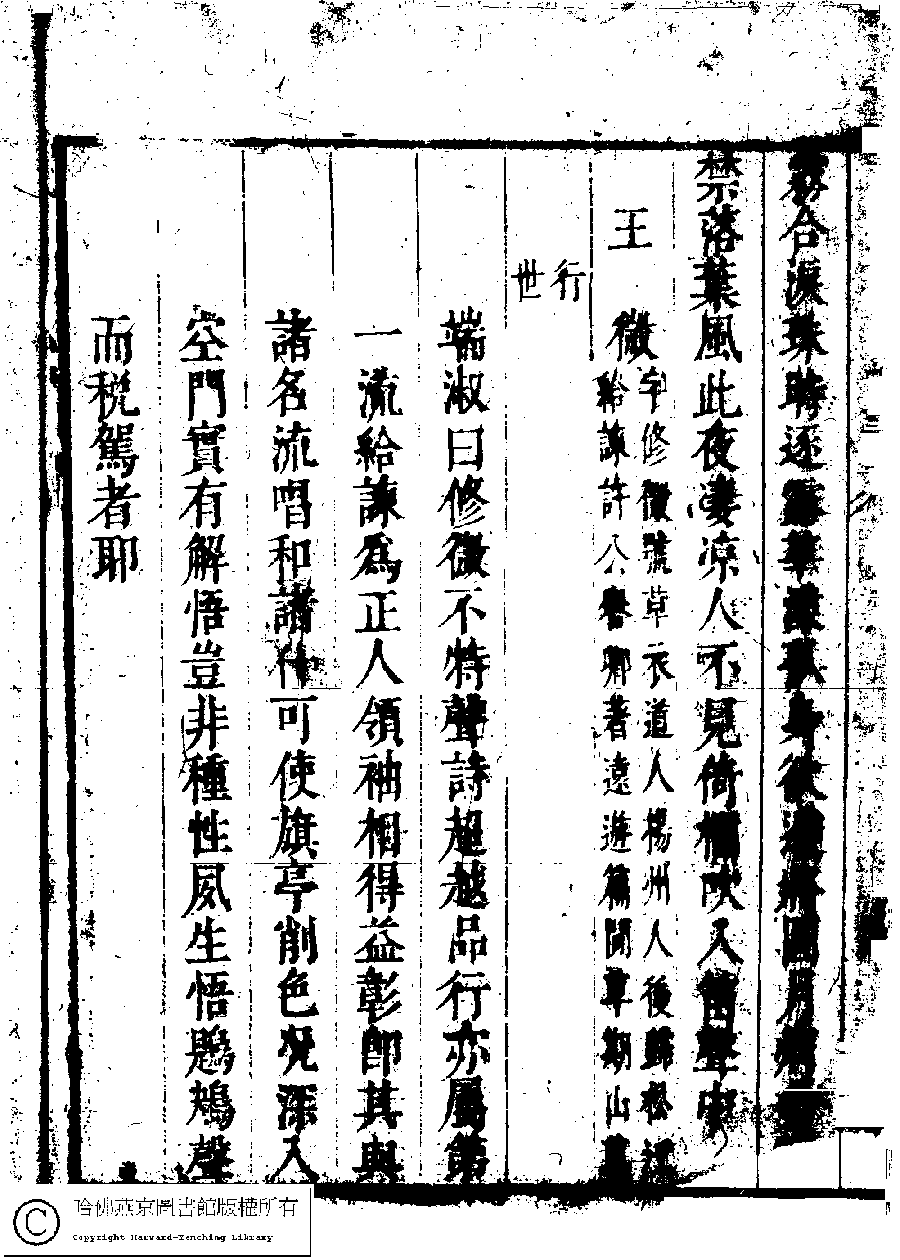 合淚珠時逐身欲月
禁落葉風此夜凄凉人不見倚欄吹入笛聲中
王　微字修微號草衣道人楊州人後歸松江
給諫許公譽卿著遠遊篇閒草期山草
行
世
端淑曰修微不特聲詩超越品行亦屬第
一流給諫為正人領袖相得益彰即其與
諸名流唱和諸什可使旗亭削色况深入
空門實有解悟豈非種性夙生悟鶗鴂聲
而税駕者耶
哈佛燕京圖書館版權所有
Copyright Harvard-Yenching Library